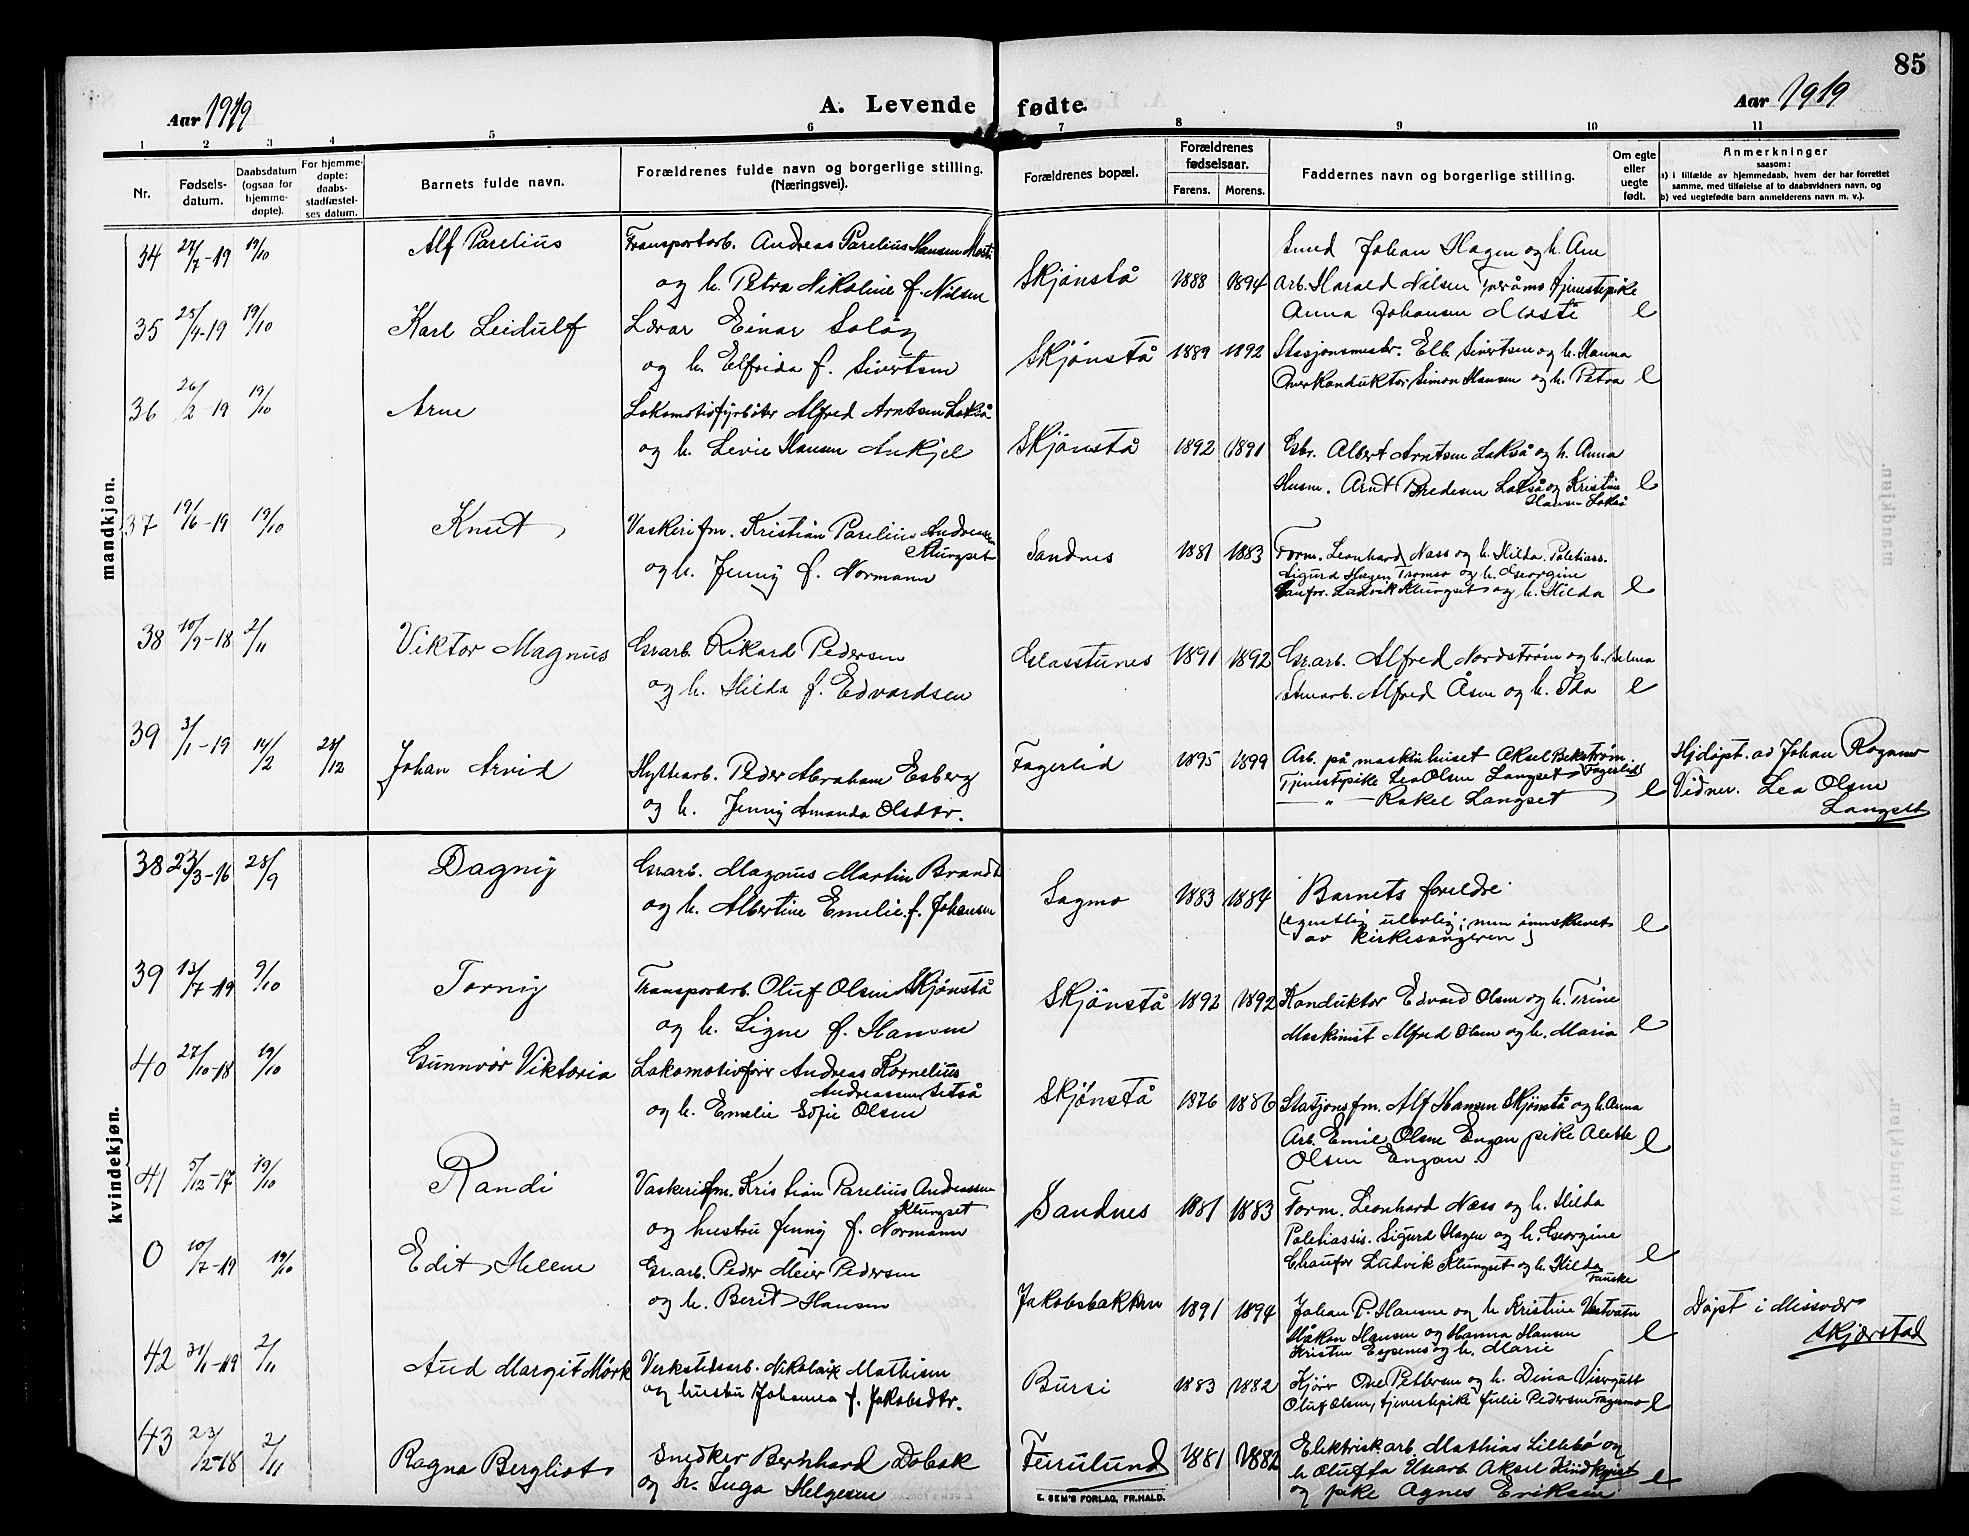 85
Aar 1919
A. Levende fødte.
Aar 1919
1 2 3 4 5 6 7 8 9 10 11
Nr.
Fødsels-datum.
Daabsdatum (ogsaa for hjemme-døpte).
For hjemme-døpte: daabs-stadfæstel-ses datum.
Barnets fulde navn.
Forældrenes fulde navn og borgerlige stilling. (Næringsvei).
Forældrenes bopæl.
Forældrenes fødselsaar.
Farens. Morens.
Faddernes navn og borgerlige stilling.
Om egte eller uegte født.
Anmerkninger
saasom:
a) i tilfælde av hjemmedaab, hvem der har forrettet samme, med tilføielse af to daabsvidners navn, og
b) ved uegtefødte barn anmelderens navn m. v.).
mandkjøn.
34 27/7-19 19/10 Alf Parelius Transportarb. Andreas Parelius Hansen Mosti
og h. Petra Nikoline f. Nilsen Skjønstå 1888 1894
Smed Johan Hagen og h. Ane
Arb. Harald Nilsen tjenestepike
Anna Johansen Mosti e
35 25/4-19 19/10 Karl Leidulf Lærar Einar Soløy
og h. Elfrida f. Sivertsen Skjønstå 1889 1892
Stasjonsmestr. Elb. Sivertsen og h. Hanna
Overkonduktør Simon Hansen og h. Petra e
36 26/2-19 19/10 Arne Lokomotivfyrbøter Alfred Arntsen Lakså
og h. Levie Hansen Ankjel Skjønstå 1892 1891
Gbr. Albert Arntsen Lakså og h. Anna
Husm. Arnt Bredesen Lakså og Kristine
Hansen Lakså e
37 19/6-19 19/10 Knut Vaskerifm. Kristian Parelius Andreassen
Klungset
og h. Jenny f. Normann Sandnes 1881 1883
Form. Leonhard Næss og h. Hilda. Politiass.
Sigurd Hagen Tromsø og h. Georgine
Ludvik Klungset og h. Hilda e
38 10/9-18 2/11 Viktor Magnus Gr.arb. Rikard Pedersen
og h. Hilda f. Edvardsen Glasstunes 1891 1892
Gr.arb. Alfred Nordstrøm og h. Selma
Alfred Åsen og h. Ida e
39 3/1-19 14/2 28/12 Johan Arvid Hyttearb. Peder Abraham Esberg
og h. Jenny Amanda Olsdtr. Fagerlid 1895 1899
Arb. på maskinhuset Aksel Bekstrøm
Fagerlid
Tjenestepike Lea Olsen Langset
— " — Rakel Langset e
Hjdøpt. av Johan Rognmo
Vidner. Lea Olsen
Langset
kvindekjøn.
38 23/3-16 28/9 Dagny Gr.arb. Magnus Martin Brandt
og h. Albertine Emelie f. Johansen Sagmo 1883 1884
Barnets foreldre
(egentlig ulovlig; men innskrevet
av kirkesangeren) e
39 13/7-19 9/10 Torny Transportarb. Oluf Olsen Skjønstå
og h. Signe f. Hansen Skjønstå 1892 1892
Konduktør Edvard Olsen og h. Trine
Maskinist Alfred Olsen og h. Maria e
40 27/10-18 19/10 Gunnvor Viktoria Lokomotivfører Andreas Kornelius
Andreassen Setså
og h. Emelie Sofie Olsen Skjønstå 1876 1886
Stasjonsfm. Alf Hansen Skjønstå og h. Anna
Arb. Emil Olsen Engan pike Alette
Olsen Engan. e
41 5/12-17 19/10 Randi Vaskerifm. Kristian Parelius Andreassen
Klungset
og hustru Jenny f. Normann Sandnes 1881 1883
Form. Leonhard Næss og h. Hilda
Politiassis. Sigurd Hagen og h. Georgine
Chaufør Ludvik Klungset og h. Hilda
Fauske e
0 10/7-19 19/10 Edit Helene Gr.arb. Peder Meier Pedersen
og h. Berit Hansen Jakobsbakken 1891 1894
Johan P. Hansen og h. Kristine Vestvatn
Håkon Hansen og Hanna Hansen
Kristen Espenes og h. Marie e
Døpt i Misvær
Skjerstad
42 31/1-19 2/11 Aud Margit Mørk Verkstedsarb. Nikolai Mathisen
og hustru Johanna f. Jakobsdtr. Bursi 1883 1882
Kjører Ove Pettersen og h. Dina
Oluf Olsen, tjenestepike Julie Pedersen Fagermo e
43 23/2-18 2/11 Ragna Bergliot Snedker Bernhard Dobak
og h. Inga Helgesen Furulund 1881 1882
Elektriskarb. Mathias Lillebø og
h. Oluffa Aksel Lindkvist
og pike Agnes Eriksen e
E. SEM'S FORLAG, FR.HALD.